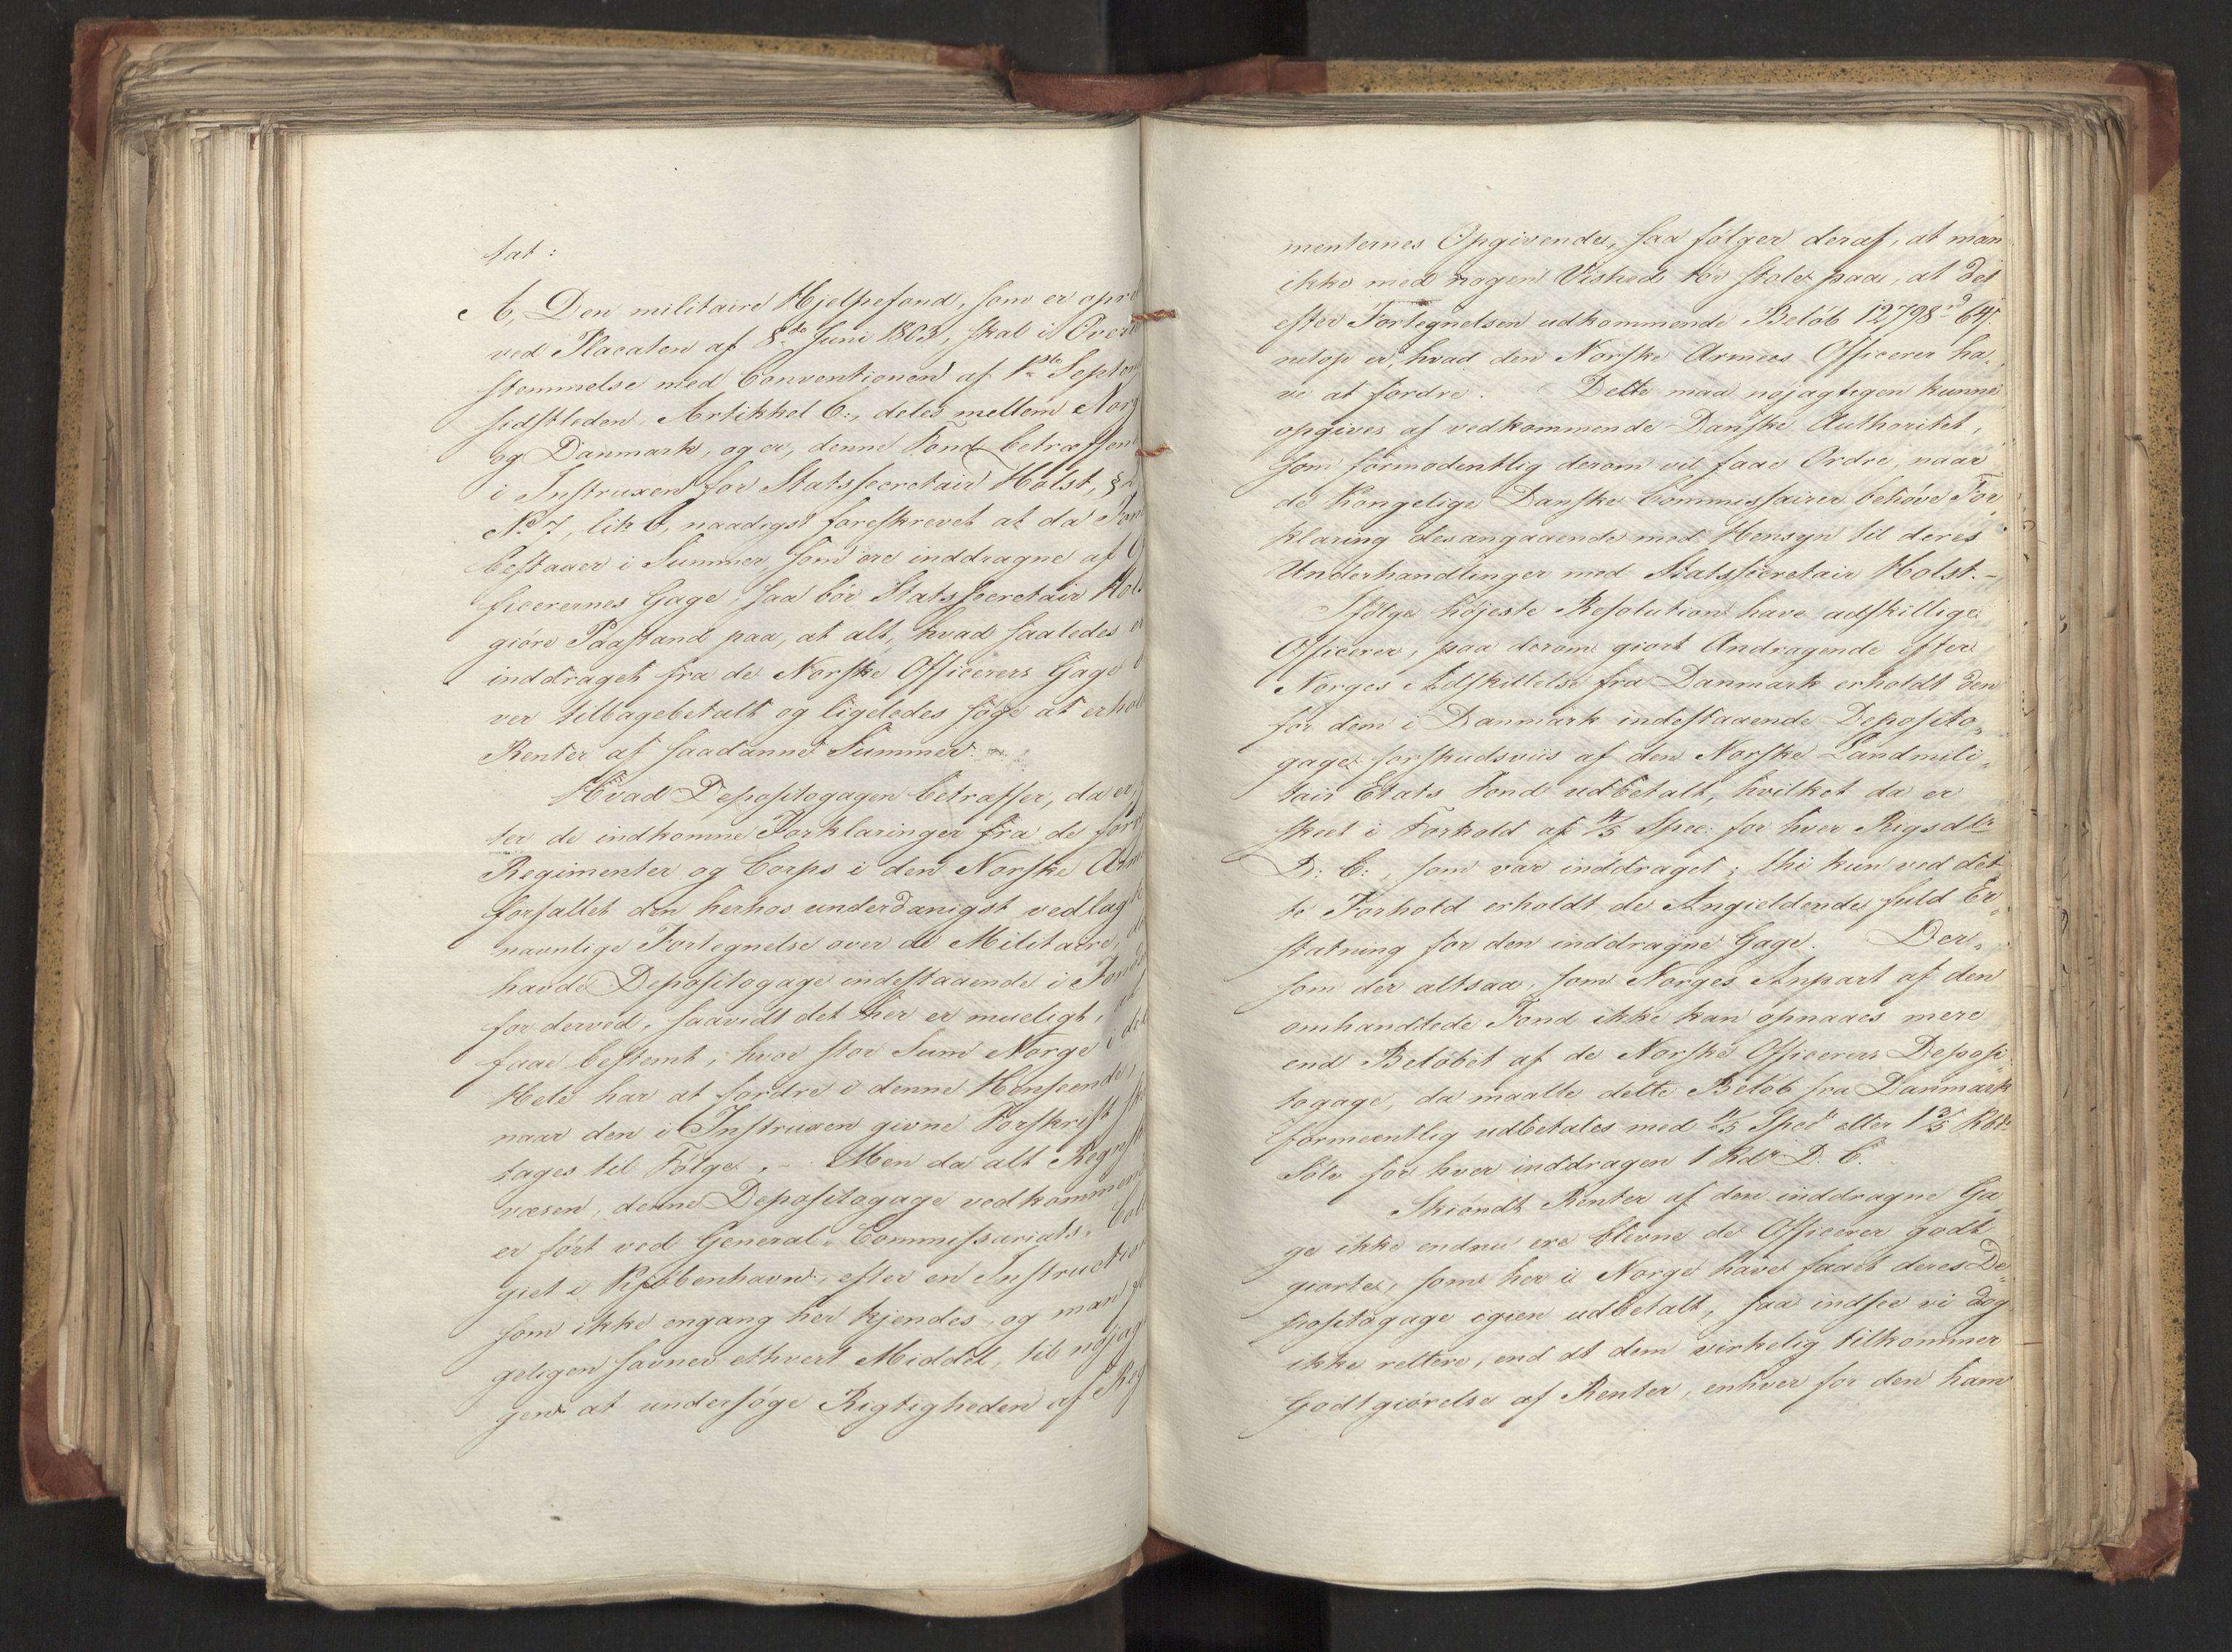 tat:
A, Den militaire Hjelpefond, som er opre
ved Placaten af 8de Juni 1803, skal i Overe
stemmelse med Conventionen af 1ste Septem
sidstleden, Artikkel 6:, deles mellem Norg
og Danmark, og er, denne Fond betræffen
i Instruxen for Statssecretair Holst, §
No 7, lit b, naadigst foreskrevet at da Fon
bestaaer i Summer som ere inddragne af O
ficerernes Gage, saa bör Statssecretair Hols
giöre Paastand paa, at alt, hvad saaledes er
inddraget fra de Norske Officerers Gage
ver tilbagebetalt og ligeledes söge at erhol
Renter af saadanne Summer.
Hvad Depositogagen betræffer, da er
ter de indkomne Forklaringer fra de
Regimenter og Corps i den Norske Arm
forfattet den herhos underdanigst vedlag
navnlige Fortegnelse over de Militaire,
havde Depositogage indestaaende i Fond
for derved, saavidt det her er mueligt,
faae bestemt, hvor stor Sum Norge i det
Hele har at fordre i denne Henseende,
naar den i Instruxen givne Forskrift
tages til Fölge. – Men da alt Regnsk
væsen, denne Depositogage vedkommen
er fört ved General-Commissariats-Col
giet i Kjöbenhavn, efter en Instruction
som ikke engang her kjendes, og man
geligen savner ethvert Middel, til nöjag
gen at undersöge Rigtigheden af Reg
menternes Opgivende, saa fölger deraf, at man
ikke med nogen Vished tör stole paa, at det
efter Fortegnelsen udkommende Belöb 12798rd 64s
netop er, hvad den Norske Armees Officerer ha-
ve at fordre. Dette maa nöjagtigen kunne
opgives af vedkommende Danske Authoritet,
som formodentlig derom vil faae Ordre, naar
de Kongelige Danske Commissairer behöve For-
klaring desangaaende med Hensyn til deres
Underhandlinger med Statssecretair Holst. –
Ifölge höjeste Resolution have adskillige
Officerer, paa derom giort Andragende efter
Norges Adskillelse fra Danmark erholdt den
for dem i Danmark indestaaende Deposito-
gage forskudsviis af den Norske Landmili-
tair Etats Fond udbetalt, hvilket da er
skeet i Forhold af 4/5 Spec: for hver Rigsdlr
D: C:, som var inddraget; thi kun ved det-
te Forhold erholdt de Angieldende fuld Er-
statning for den inddragne Gage. Der-
som der altsaa, som Norges Anpart af den
omhandlede Fond ikke kan opnaaes mere
end Belöbet af de Norske Officerers Deposi-
togage, da maatte dette Belöb fra Danmark
formeentlig udbetales med 4/5 Spec eller 1 3/5 Rbd.
Sölv for hver inddragen 1 Rdr D. C.
Skiöndt Renter af den inddragne Ga-
ge ikke endnu ere blevne de Officerer godt-
giorte, som her i Norge have faaet deres De-
positogage igien udbetalt, saa indsee vi dog
ikke rettere, end at dem virkelig tilkommer
Godtgiörelse af Renter, enhver for den ham